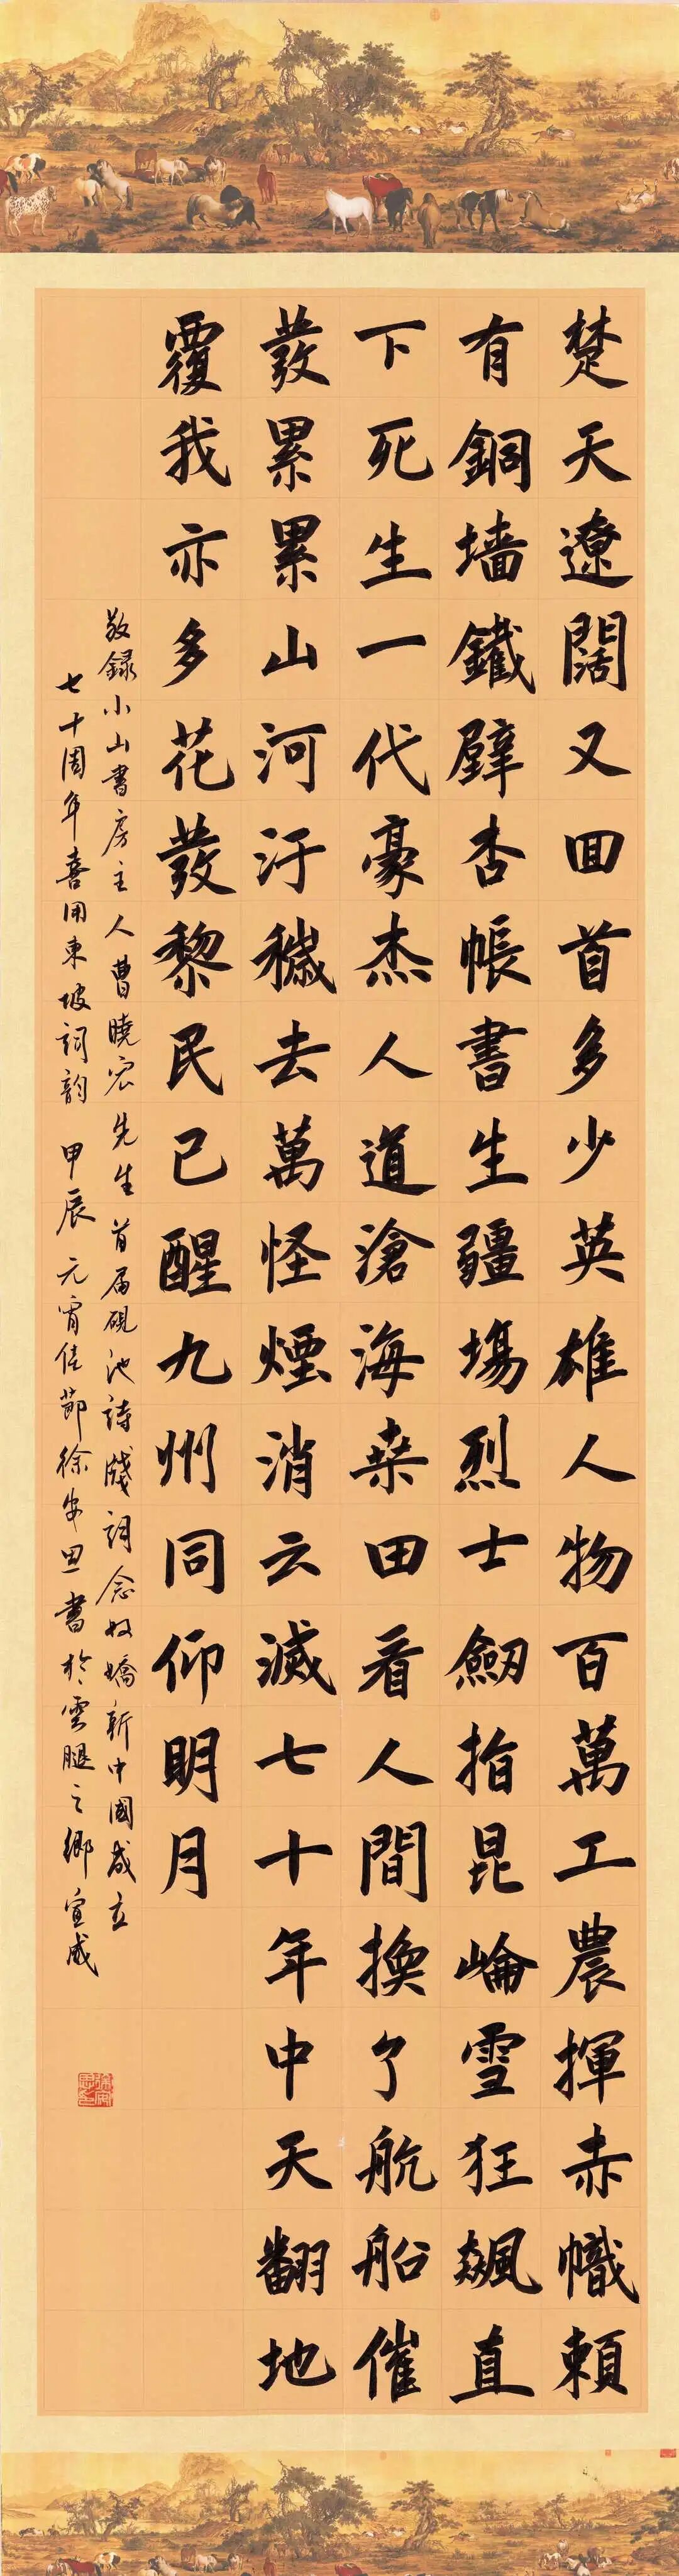 楚天遼闊又回首多少英雄人物百萬工農揮赤幟賴
有銅墻鐵壁杏帳書生疆場烈士劍指昆崙雪狂飆直
下死生一代豪杰人道滄海桑田看人間換了航船催
發累累山河汙穢去萬怪煙消云滅七十年中天翻地
覆我亦多花發黎民已醒九州同仰明月
敬録小山書房主人曹曉宏先生首届硯池詩牋詞念奴嬌新中國成立
七十周年喜用東坡詞韵甲辰元宵佳節徐安思書於雲腿之鄉宣威